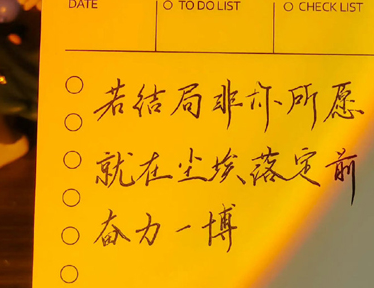 DATE
TO DO LIST
CHECK LIST
若结局非你所愿
就在尘埃落定前
奋力一博